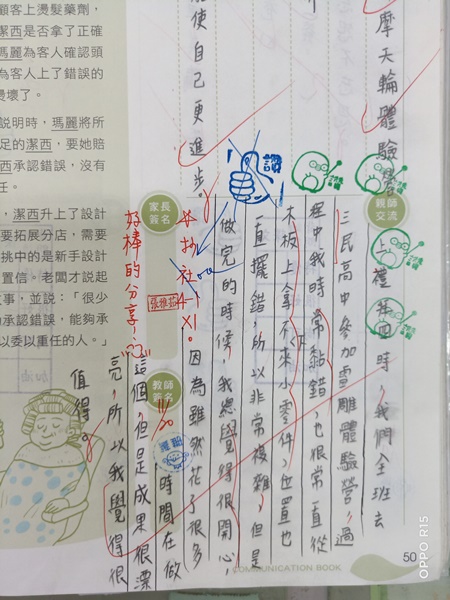 摩天輪體驗營
親師交流
上禮拜四時，我們全班去
三民高中參加雷雕體驗營，過
程中我時常黏錯，也很常直從
木板上拿不下來小零件，位置也
一直擺錯，所以非常複雜，但是
做完的時候，我總覺得很開心，
因為雖然花了很多
時間在做
這個，但是成果很漂
亮，所以我覺得很
值得。
能使自己更進步。
讚
家長簽名
張雅茹
教師簽名
11/20
好棒的分享
顧客上燙髮藥劑，
潔西是否拿了正確
瑪麗為客人確認頭
為客人上了錯誤的
燙壞了。
說明時，瑪麗將所
足的潔西，要她賠
西承認錯誤，沒有
任。
，潔西升上了設計
要拓展分店，需要
挑中的是新手設計
置信，老闆才説起
事，並說：「很少
承認錯誤，能夠承
以委以重任的人。」
COMMUNICATION BOOK
50
OPPO R15